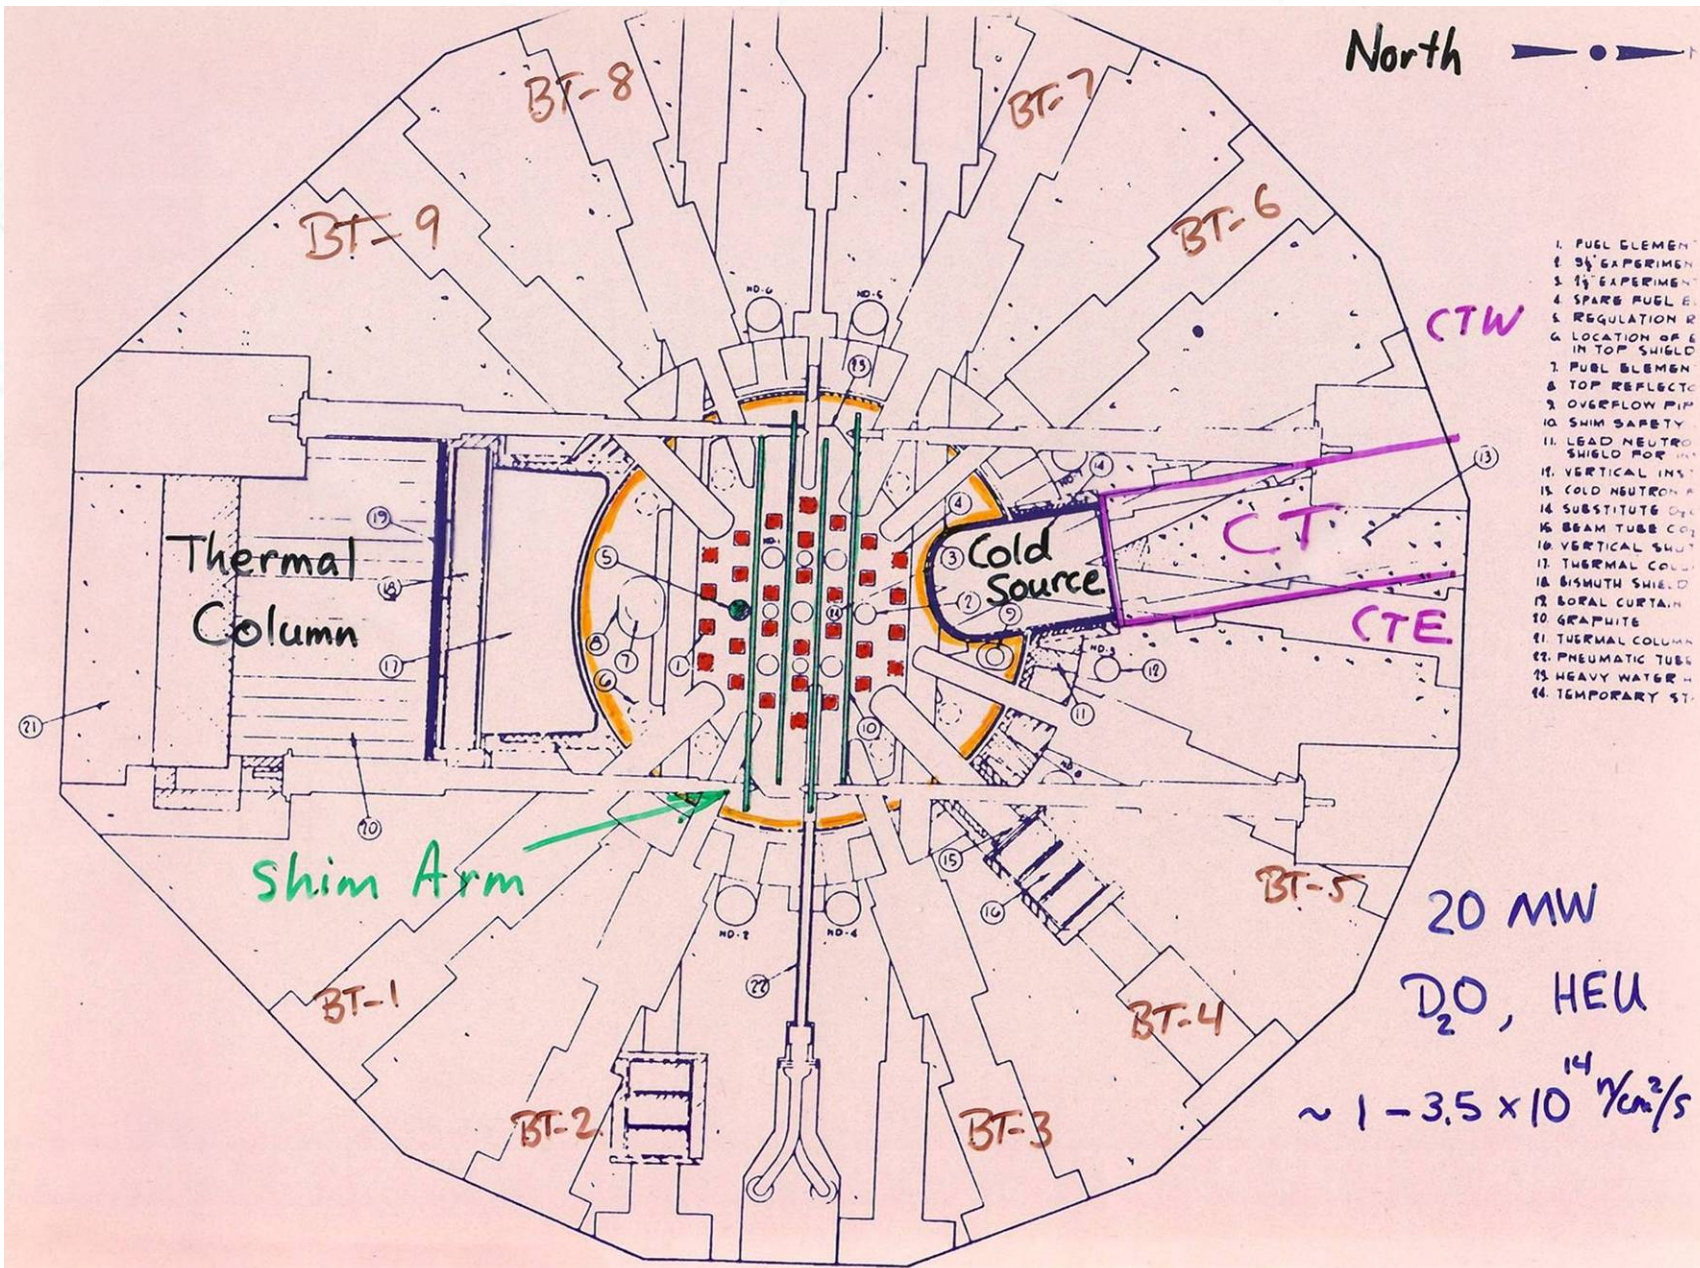 North
BT-8
BT-7
BT-9
BT-6
CTW
CT
CTE
Cold
Source
Thermal
Column
Shim Arm
BT-5
BT-1
BT-4
BT-2
BT-3
20 MW
D₂O, HEU
~ 1 - 3.5 x 10¹⁴ n/cm²/s
1. FUEL ELEMEN
EXPERIMEN
EXPERIMEN
4. SPARE FUEL E
5. REGULATION R
6. LOCATION OF
IN TOP SHIELD
7. FUEL ELEMEN
8. TOP REFLECTO
9. OVERFLOW PIP
10. SHIM SAFETY
11. LEAD NEUTRO
SHIELD FOR
12. VERTICAL INS
13. COLD NEUTRON
14. SUBSTITUTE
15. BEAM TUBE CO
16. VERTICAL SHU
17. THERMAL COL
18. BISMUTH SHIELD
19. BORAL CURTAIN
20. GRAPHITE
21. THERMAL COLUMN
22. PNEUMATIC TUBE
23. HEAVY WATER
24. TEMPORARY ST
23
13
14
4
19
5
3
18
2
9
8
17
7
1
12
6
11
21
10
20
15
16
22